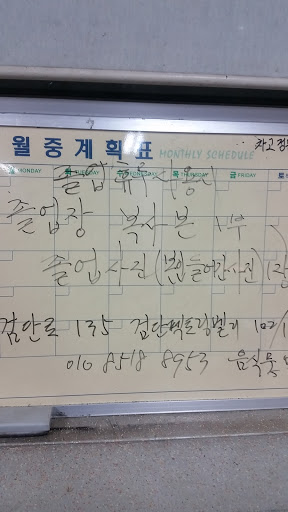 월 중 계 획 표 MONTHLY SCHEDULE 차고
MONDAY TUESDAY WEDNESDAY THURSDAY FRIDAY 토
졸업
졸업장 복사본 1부
졸업사진 (본인들어간사진)
검안로 135 검단빅토링빌리 102/1
010 8518 8953 음식물